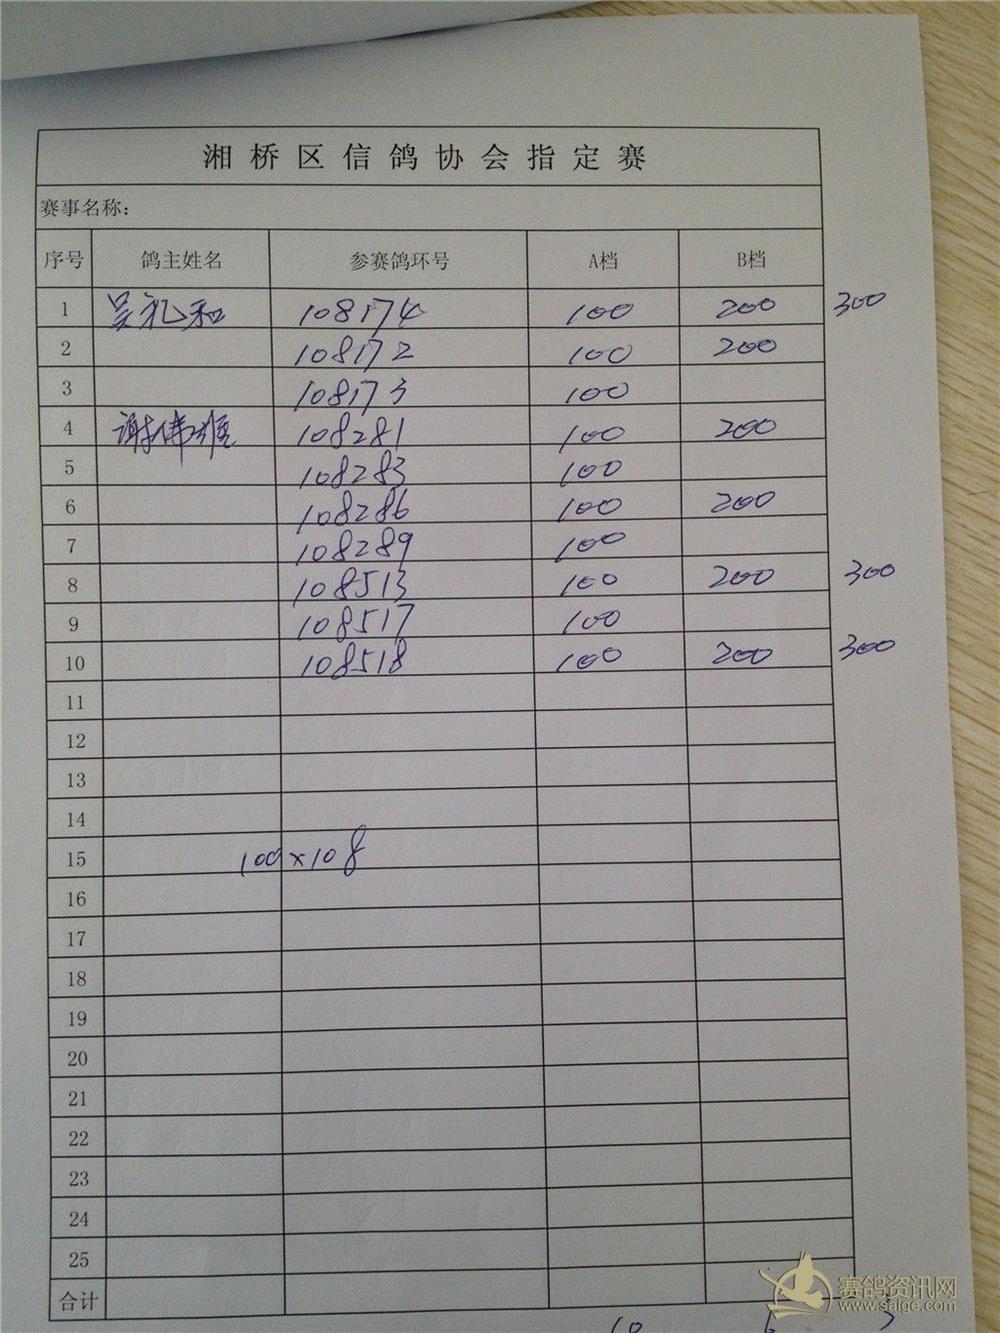 湘桥区信鸽协会指定赛
赛事名称:
序号 鸽主姓名 参赛鸽环号 A档 B档
1 吴礼和 108174 100 200 300
2 108172 100 200
3 108173 100
4 谢伟雄 108281 100 200
5 108283 100
6 108286 100 200
7 108289 100
8 108513 100 200 300
9 108517 100
10 108518 100 200 300
11
12
13
14
15 100×108
16
17
18
19
20
21
22
23
24
25
合计
10 6 3
赛鸽资讯网
www.saige.com